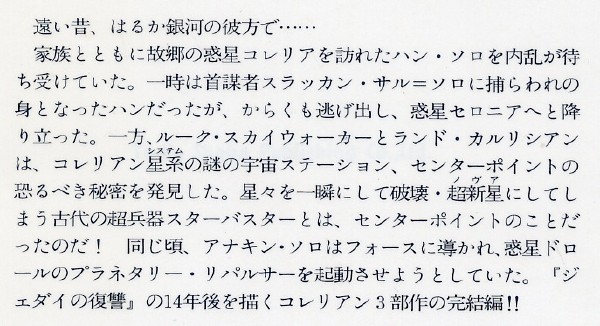 遠い昔、はるか銀河の彼方で……
家族とともに故郷の惑星コレリアを訪れたハン・ソロを内乱が待
ち受けていた。一時は首謀者スラッカン・サル＝ソロに捕らわれの
身となったハンだったが、からくも逃げ出し、惑星セロニアへと降
り立った。一方、ルーク・スカイウォーカーとランド・カルリシアン
システム
は、コレリアン星系の謎の宇宙ステーション、センターポイントの
ノヴァ
恐るべき秘密を発見した。星々を一瞬にして破壊・超新星にしてし
まう古代の超兵器スターバスターとは、センターポイントのことだ
ったのだ！　同じ頃、アナキン・ソロはフォースに導かれ、惑星ドロ
ールのプラネタリー・リパルサーを起動させようとしていた。『ジ
ェダイの復讐』の14年後を描くコレリアン３部作の完結編!!